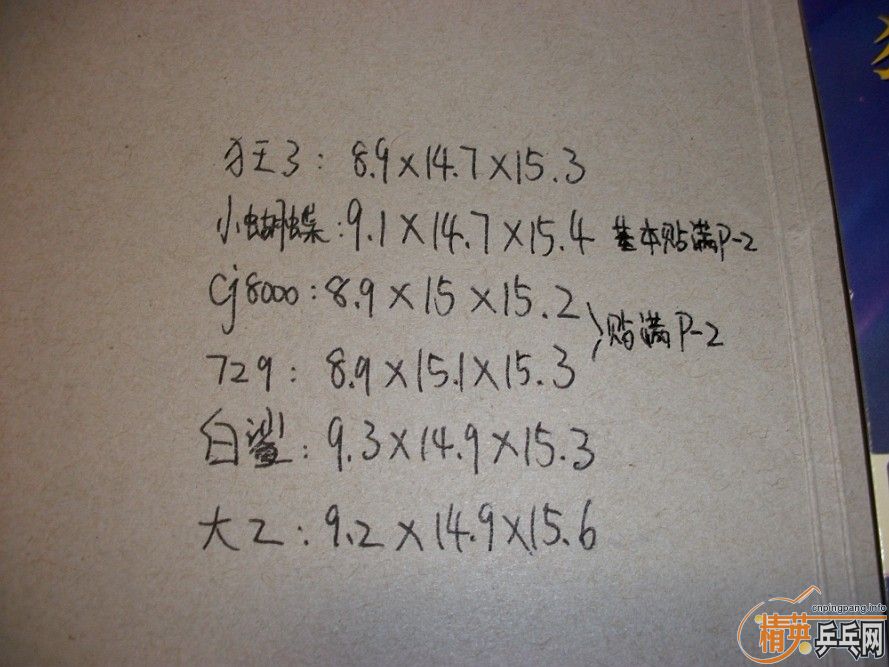 狂3:8.9×14.7×15.3
小蝴蝶:9.1×14.7×15.4 基本贴满P-2
Cj8000:8.9×15×15.2
贴满P-2
729:8.9×15.1×15.3
白鲨:9.3×14.9×15.3
大乙:9.2×14.9×15.6
cnpingpang.info
精英乒乓网